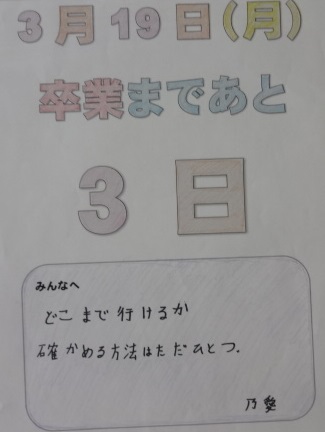 3月19日(月)
卒業まであと
3日
みんなへ
どこまで行けるか
確かめる方法はただひとつ。
乃愛